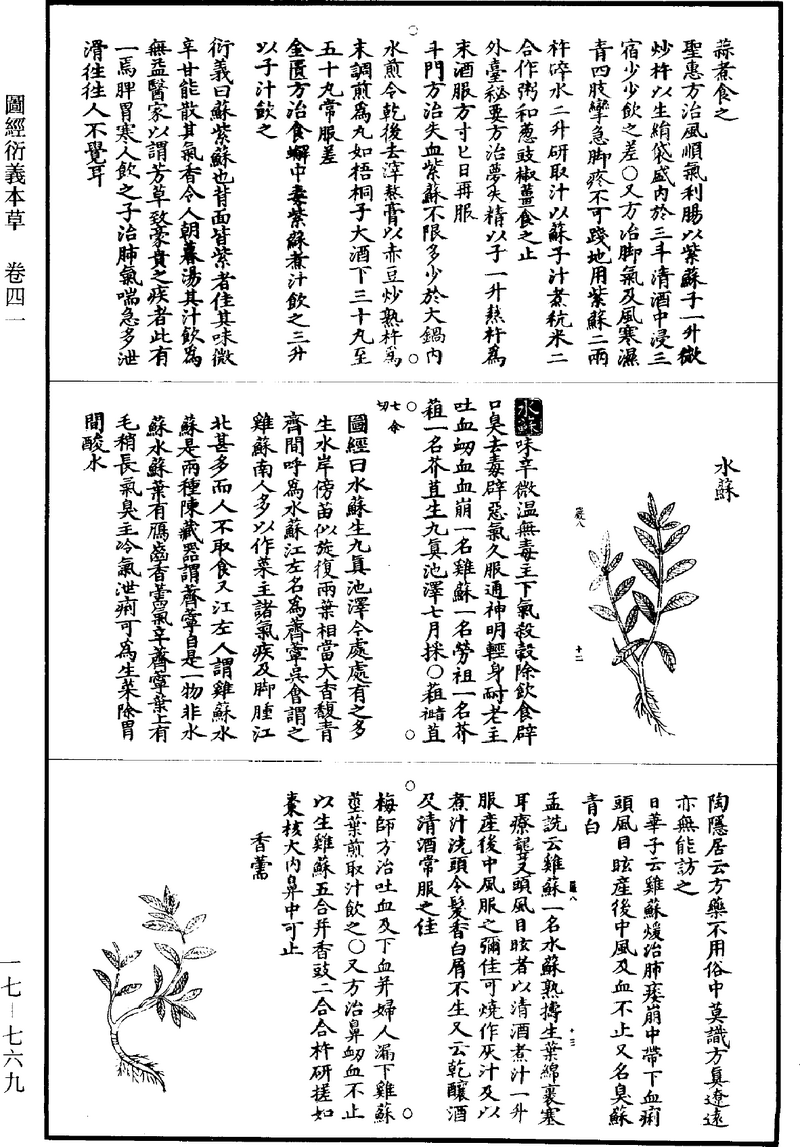 圖經衍義本草　卷四一
一七—七六九
蒜煮食之
聖惠方治風順氣利腸以紫蘇子一升微
炒杵以生絹袋盛內於三斗清酒中浸三
宿少少飲之差○又方治脚氣及風寒濕
青四肢攣急脚疼不可踐地用紫蘇二兩
杵碎水二升研取汁以蘇子汁煮秔米二
合作粥和葱豉椒薑食之止
外臺秘要方治夢失精以子一升熬杵為
末酒服方寸匕日再服
斗門方治失血紫蘇不限多少於大鍋內
水煎令乾後去滓熬膏以赤豆炒熟杵為
末調煎為丸如梧桐子大酒下三十丸至
五十丸常服差
金匱方治食蠏中毒紫蘇煮汁飲之三升
以子汁飲之
衍義曰蘇紫蘇也背面皆紫者佳其味微
辛甘能散其氣香令人朝暮湯其汁飲為
無益醫家以謂芳草致豪貴之疾者此有
一焉脾胃寒人飲之子治肺氣喘急多泄
滑往往人不覺耳
水蘇
嚴八
十二
水蘇味辛微温無毒主下氣殺穀除飲食辟
口臭去毒辟惡氣久服通神明輕身耐老主
吐血衂血血崩一名雞蘇一名勞祖一名芥
葅一名芥苴生九真池澤七月採○葅䜺苴
七余
切
圖經曰水蘇生九真池澤今處處有之多
生水岸傍苗似旋復兩葉相當大香馥青
齊間呼為水蘇江左名為薺薴吳會謂之
雞蘇南人多以作菜主諸氣疾及脚腫江
北甚多而人不取食又江左人謂雞蘇水
蘇是兩種陳藏器謂薺薴自是一物非水
蘇水蘇葉有鴈齒香薷氣辛薺薴葉上有
毛稍長氣臭主冷氣泄痢可為生菜除胃
間酸水
陶隱居云方藥不用俗中莫識方真遼遠
亦無能訪之
日華子云雞蘇煖治肺痿崩中帶下血痢
頭風目眩產後中風及血不止又名臭蘇
青白
孟詵云雞蘇一名水蘇熟擣生葉綿裹塞
耳療聾又頭風目眩者以清酒煮汁一升
服產後中風服之彌佳可燒作灰汁及以
煮汁洗頭令髮香白屑不生又云乾釀酒
及清酒常服之佳
十三
梅師方治吐血及下血并婦人漏下雞蘇
莖葉煎取汁飲之○又方治鼻衂血不止
以生雞蘇五合并香豉二合合杵研搓如
棗核大內鼻中可止
香薷